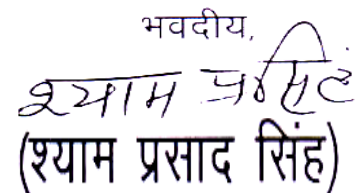 भवदीय,
श्याम प्र० सिंह
(श्याम प्रसाद सिंह)